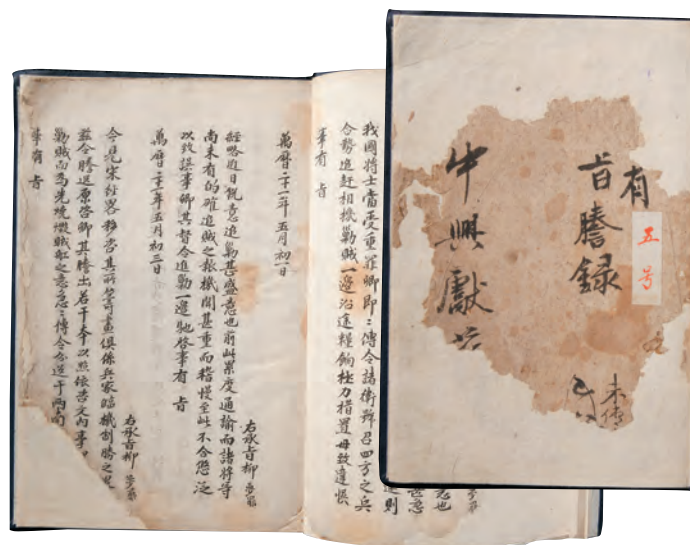 有
旨謄錄
五号
中興獻
未传
我國將士當受重罪卿即〻傳令諸衛號召四方之兵
合勢追赶相機勦賊一邊沿途糧餉極力措置毋致違悞
事有 旨
萬曆二十一年五月初一日
右承旨柳
經略近日慨意追勦甚盛意也前此累度通諭而諸將等
尚未有的確追賊之報機關甚重而稽慢至此不合泛
以致誤事卿其督令進勦一邊馳啓事有 旨
萬曆二十一年五月初三日
右承旨柳
今見宋經略移咨其所籌畫俱係兵家臨機制勝之
茲令謄送原咨卿其謄出若干本以照依咨文內事
勦賊而爲先燒燬賊船之意急〻傳令分送于兩南
事有 旨